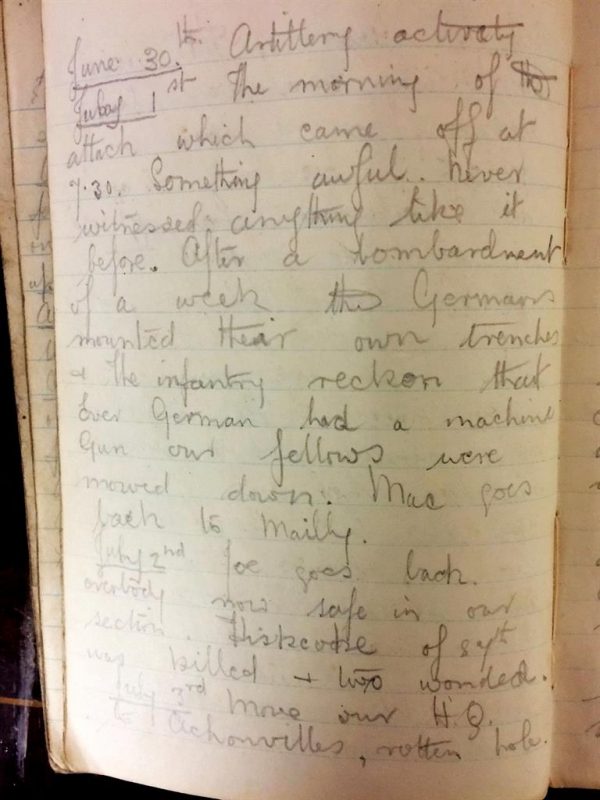 June 30.th Artillery activity
July 1st The morning of the
attack which came off at
7.30. Something awful. Never
witnessed anything like it
before. After a bombardment
of a week the Germans
mounted their own trenches
+ the infantry reckon that
Ever German had a machine
Gun our fellows were
mowed down. Mac goes
back to Mailly.
July 2nd Joe goes back.
everbody now safe in our
section. of 89th
was killed + two wonded.
July 3rd Move our H.Q.
to Achonvilles, rotten hole.